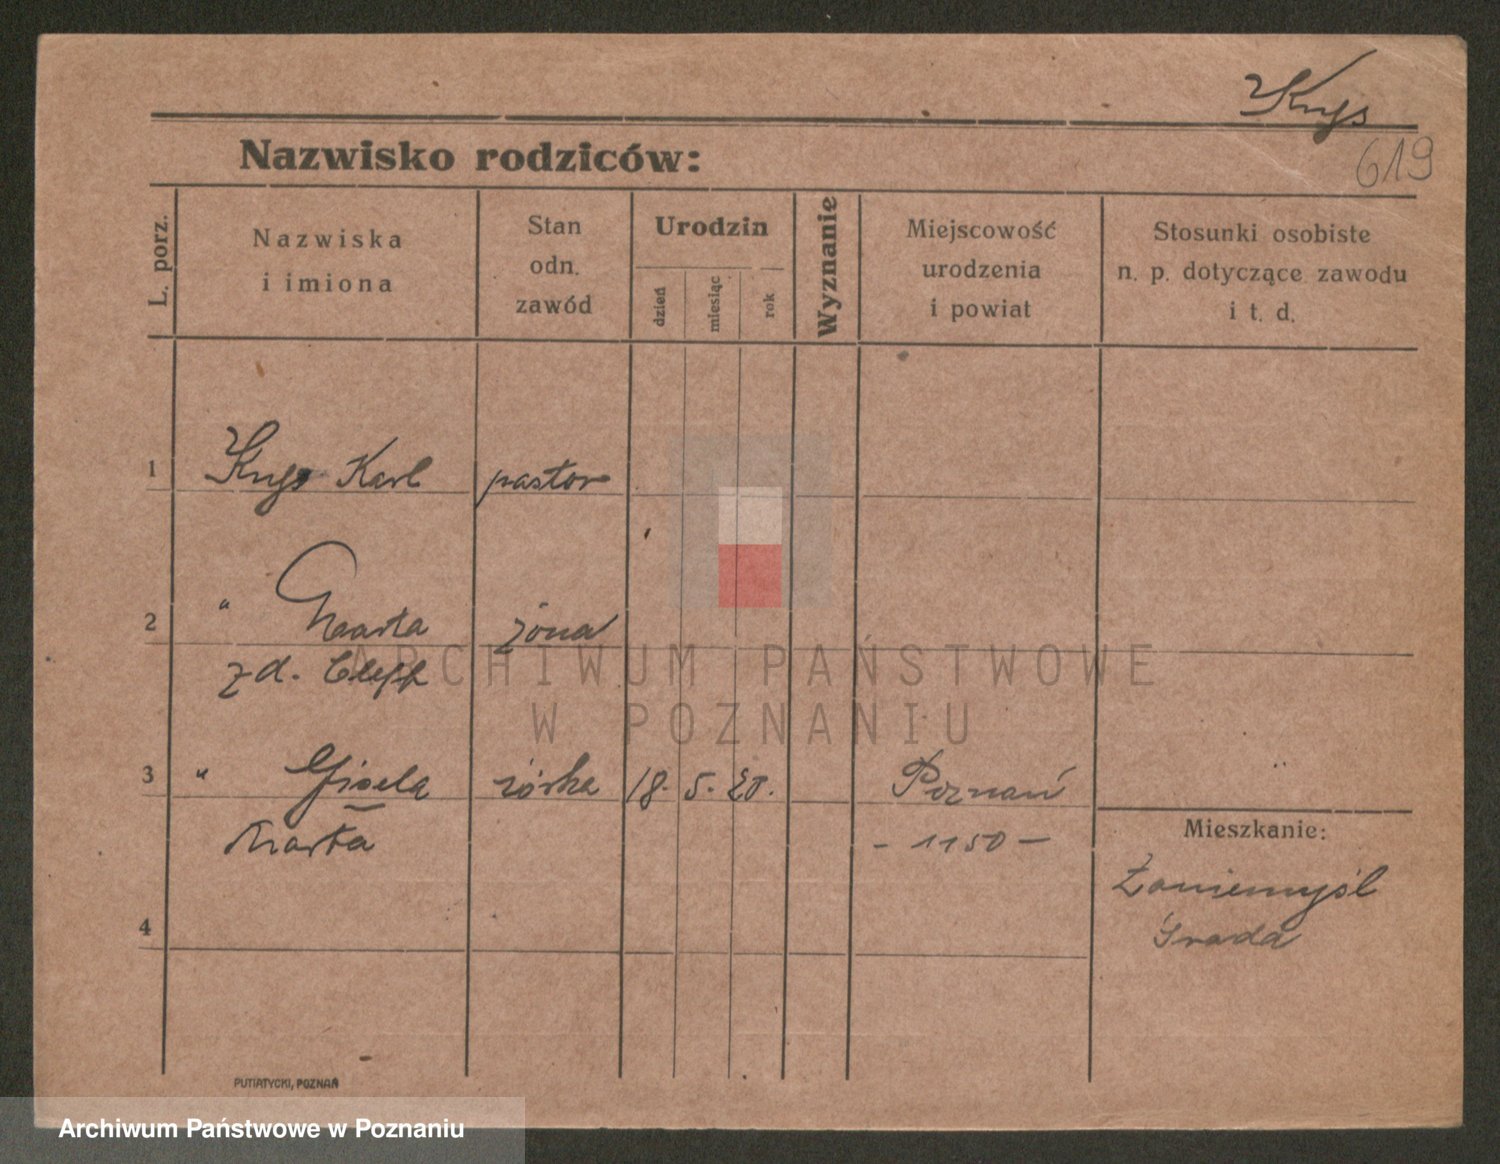 Krys
619
Nazwisko rodziców:
L. porz.
Nazwiska
i imiona
Stan
odn.
zawód
Urodzin
dzień
miesiąc
rok
Wyznanie
Miejscowość
urodzenia
i powiat
Stosunki osobiste
n. p. dotyczące zawodu
i t. d.
1 Karl pastor
2 " Marta żona
zd.
3 " Gisela córka 18. 5. 20. Poznań
Marta - 1150 -
Mieszkanie:
Zaniemyśl
Środa
4
PUTIATYCKI, POZNAŃ
ARCHIWUM PAŃSTWOWE
W POZNANIU
Archiwum Państwowe w Poznaniu